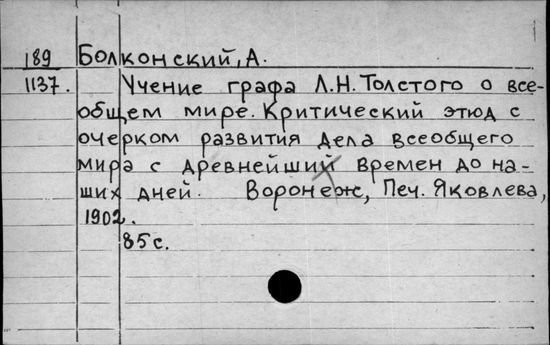 189 Болконский, А.
1137. Учение графа Л.Н. Толстого о все-
общем мире. Критический этюд с
очерком развития дела всеобщего
мира с древнейших времен до на-
ших дней. Воронеж, Печ. Яковлева,
1902.
85 с.